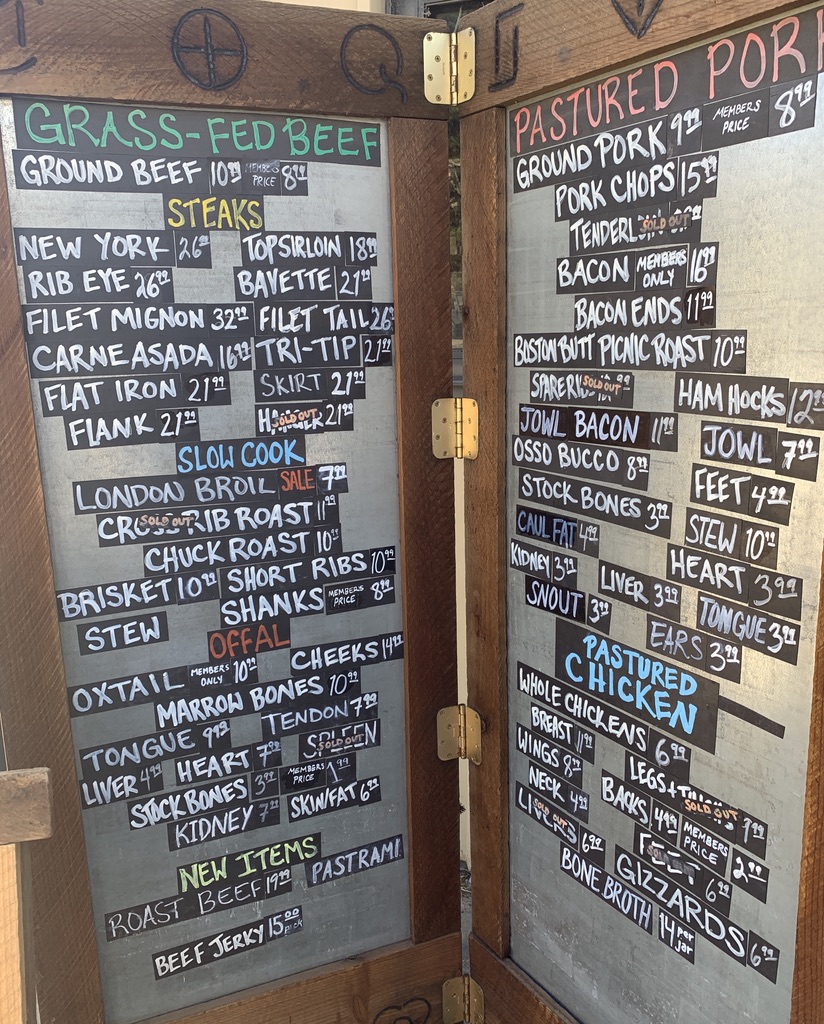 GRASS-FED BEEF
GROUND BEEF 10⁹⁹ MEMBERS PRICE 8⁹⁹
STEAKS
NEW YORK 26⁹⁹ TOPSIRLOIN 18⁹⁹
RIB EYE 26⁹⁹ BAVETTE 21⁹⁹
FILET MIGNON 32⁹⁹ FILET TAIL 26
CARNE ASADA 16⁹⁹ TRI-TIP 21⁹⁹
FLAT IRON 21⁹⁹ SKIRT 21⁹⁹
FLANK 21⁹⁹ SOLD OUT 21⁹⁹
SLOW COOK
LONDON BROIL SALE 7⁹⁹
SOLD OUT RIB ROAST 11⁹⁹
CHUCK ROAST 10⁹⁹
BRISKET 10⁹⁹ SHORT RIBS 10⁹⁹
SHANKS MEMBERS PRICE 8⁹⁹
STEW
OFFAL
OXTAIL MEMBERS ONLY 10⁹⁹ CHEEKS 14⁹⁹
MARROW BONES 10⁹⁹
TONGUE 9⁹⁹ TENDON 7⁹⁹
LIVER 4⁹⁹ HEART 7⁹⁹ SPLEEN SOLD OUT
STOCK BONES 3⁹⁹ MEMBERS PRICE 1⁹⁹
KIDNEY 7⁹⁹ SKIN/FAT 6⁹⁹
NEW ITEMS
ROAST BEEF 19⁹⁹ PASTRAMI
BEEF JERKY 15⁰⁰ pack
PASTURED PORK
GROUND PORK 9⁹⁹ MEMBERS PRICE 8⁹⁹
PORK CHOPS 15⁹⁹
SOLD OUT
BACON MEMBERS ONLY 16⁹⁹
BACON ENDS 11⁹⁹
BOSTON BUTT PICNIC ROAST 10⁹⁹
SOLD OUT HAM HOCKS 12⁹⁹
JOWL BACON 11⁹⁹ JOWL 7⁹⁹
OSSO BUCCO 8⁹⁹ FEET 4⁹⁹
STOCK BONES 3⁹⁹
CAUL FAT 4⁹⁹ STEW 10⁹⁹
KIDNEY 3⁹⁹ LIVER 3⁹⁹ HEART 3⁹⁹
SNOUT 3⁹⁹ EARS 3⁹⁹ TONGUE 3⁹⁹
PASTURED
CHICKEN
WHOLE CHICKENS 6⁹⁹
BREAST 11⁹⁹
WINGS 8⁹⁹ LEGS + SOLD OUT 7⁹⁹
NECK 4⁹⁹ BACKS 4⁹⁹ MEMBERS PRICE 2⁹⁹
LIVERS SOLD OUT 6⁹⁹ SOLD OUT 6⁹⁹
GIZZARDS 6⁹⁹
BONE BROTH 14 per jar